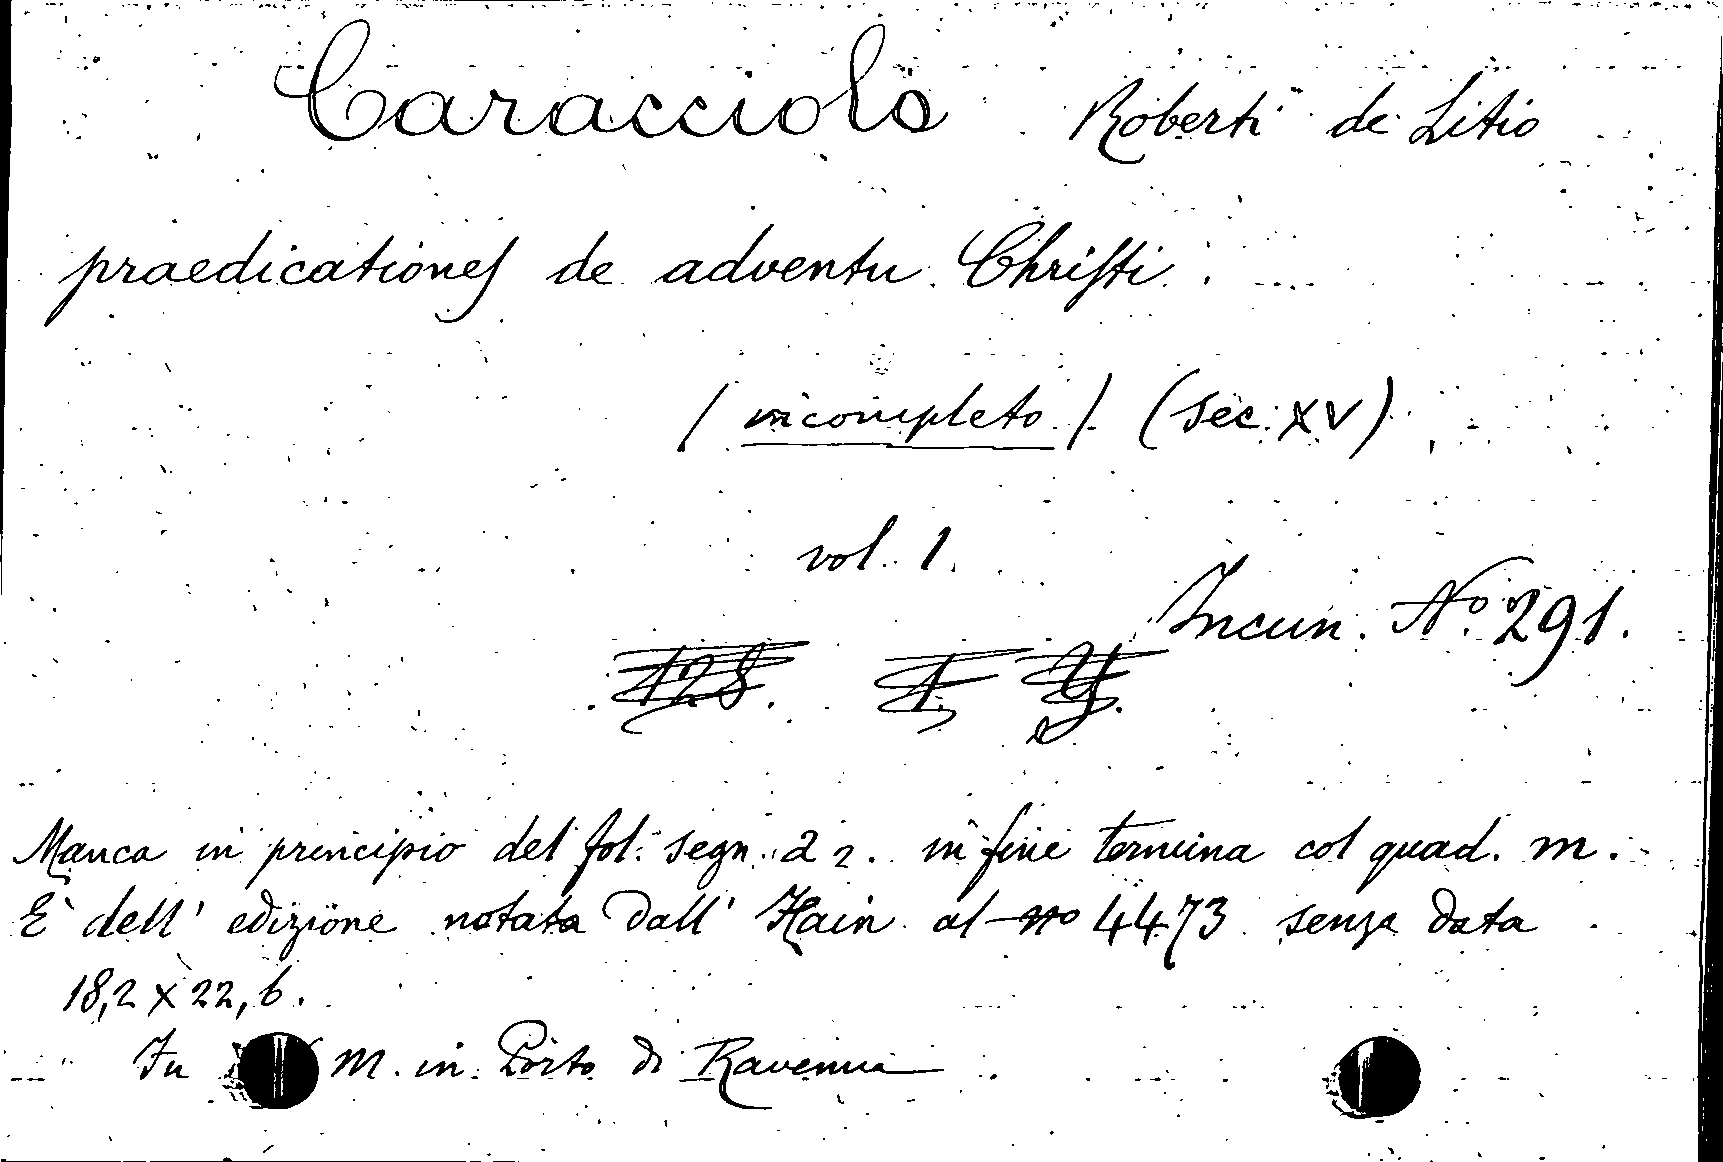 Caracciolo Roberti de Litio
praedicationes de adventu Christi.
(incompleto) (sec. XV)
vol. 1.
Incun. Nº 291.
128. 1. Y.
Manca in principio del fol. segn. a2. in fine termina col quad. m.
È dell' edizione notata dall' Hain al nº 4473 senza data
18,2 x 22,6.
Fu M. in Porto di Ravenna